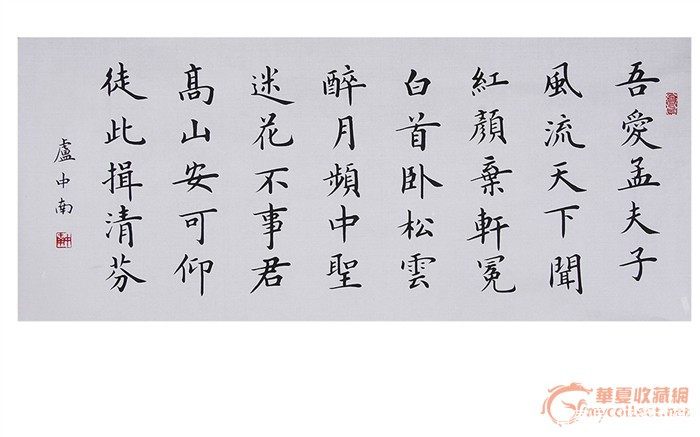 吾愛孟夫子
風流天下聞
紅顏棄軒冕
白首卧松雲
醉月頻中聖
迷花不事君
髙山安可仰
徒此揖清芬
盧中南
華夏收藏網
mycollect.net